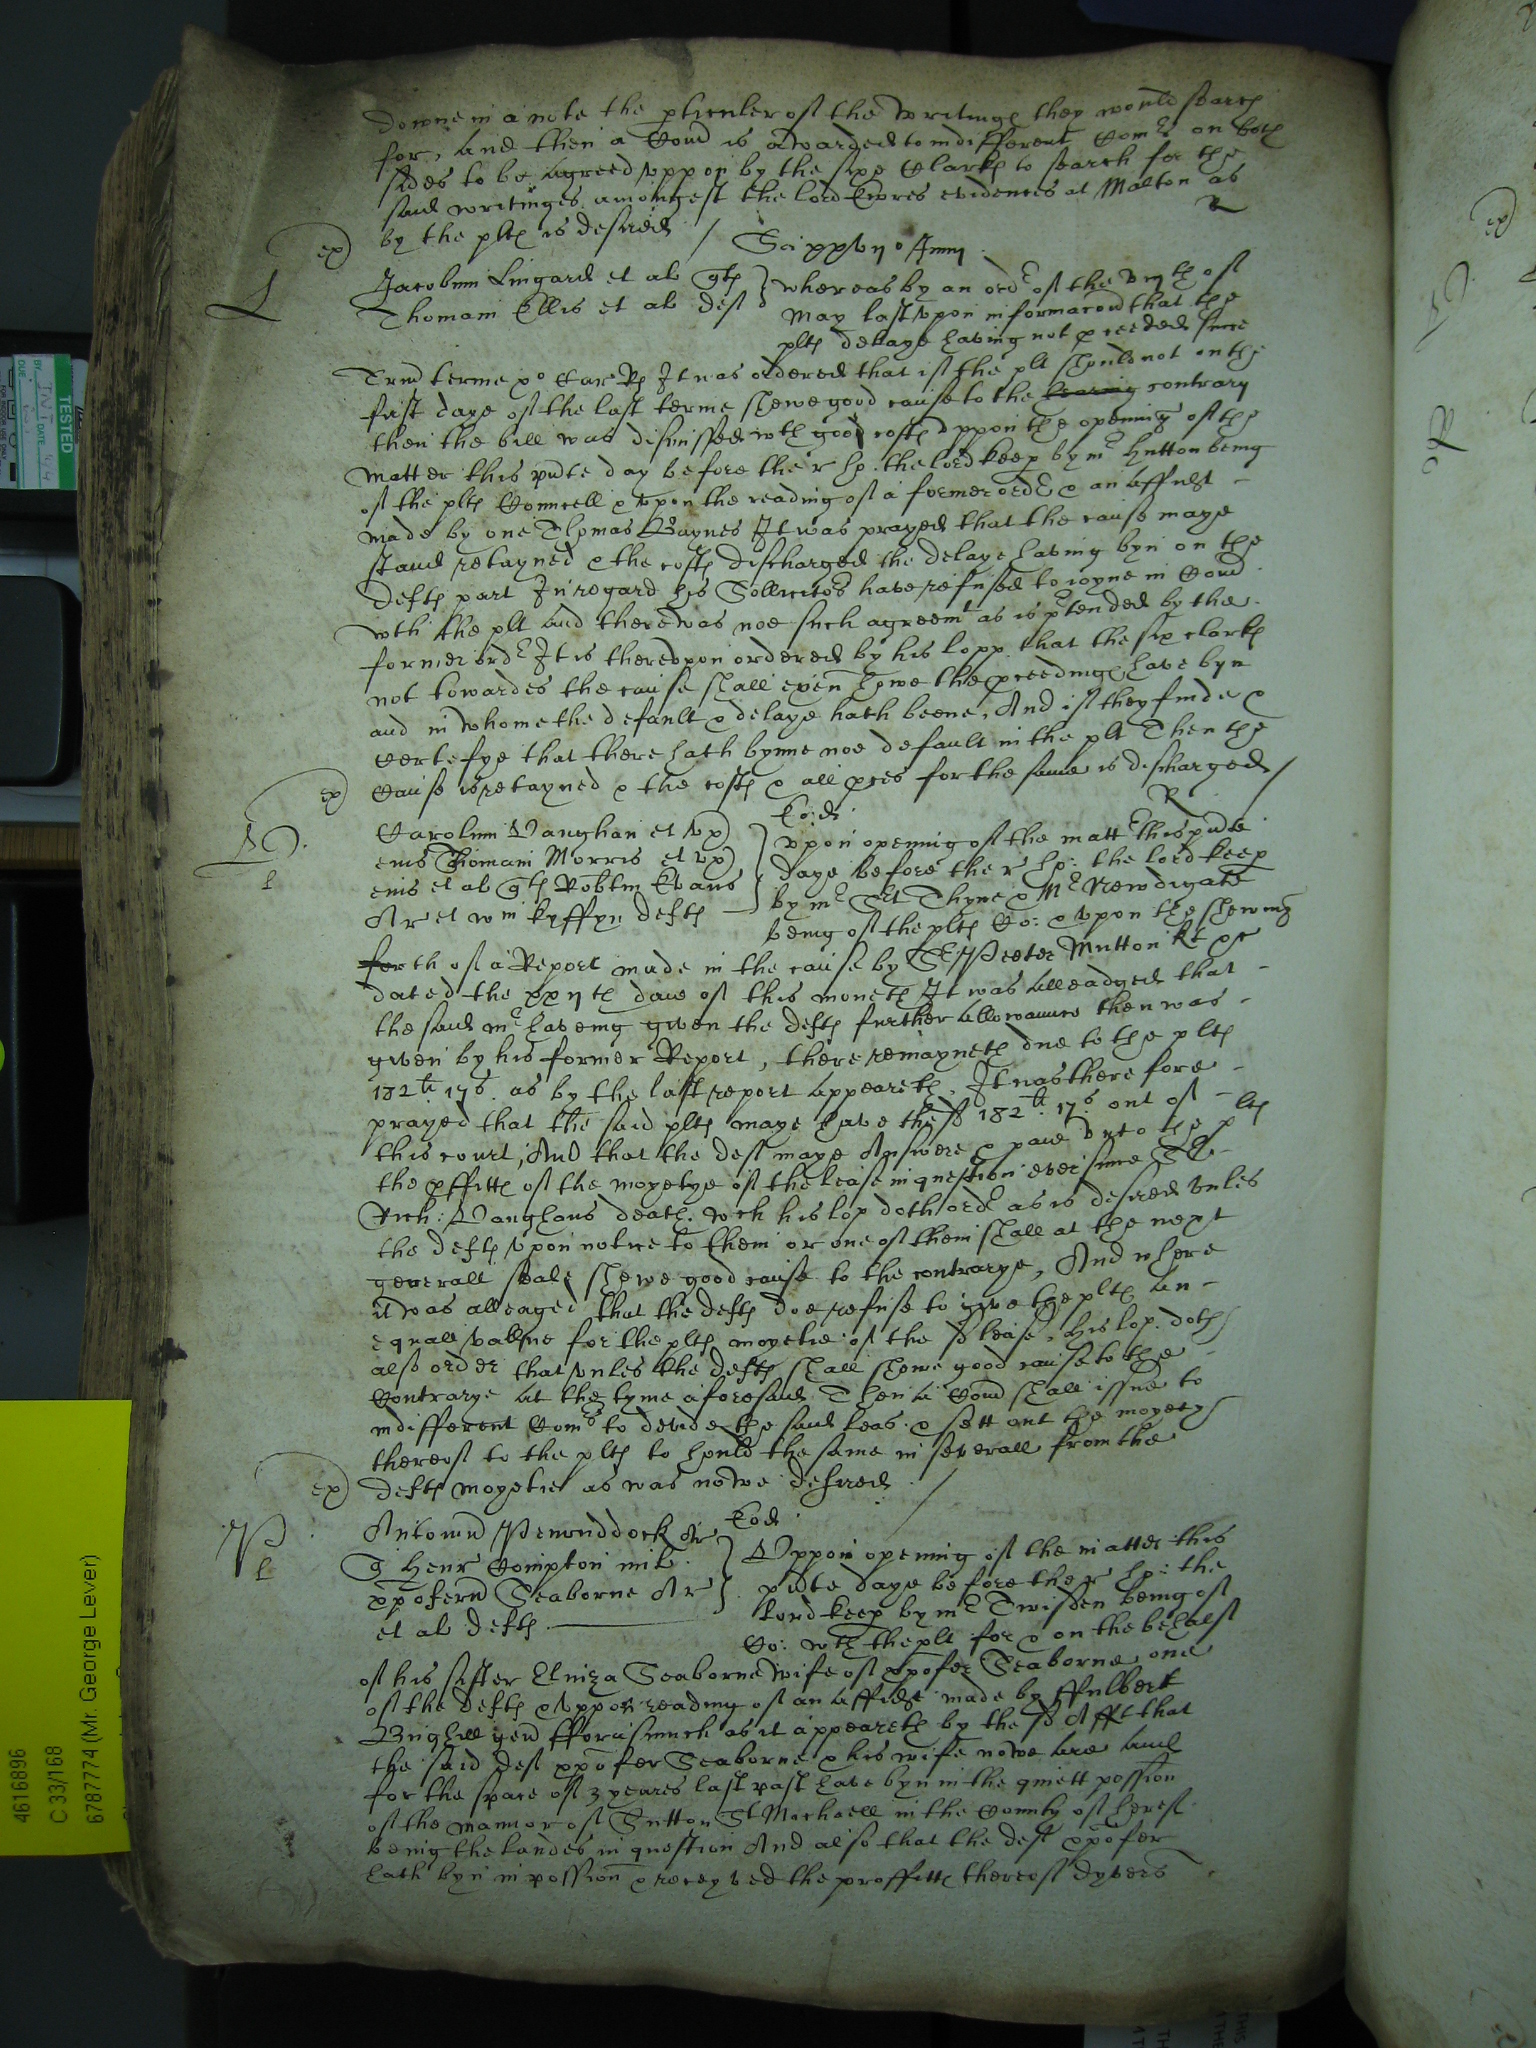 downe in a note the pticuler of the writinges they would search
for, And then a Com̃ is awarded to indifferent Comrs on both
sides to be agreed uppon by the sixe Clarkes to search for the
said writinges amongest the lord Evres evidences at Malton as
by the pltes is desired / R
ex)
Jacobum Lingard et al qtes
Thomam Ellis et al deft
whereas by an ordr of the
May last upon informacon that the
pltes delaye having not pceeded since
terme po Car Rs It was ordered that if the plt should not on the
first daye of the last terme shewe good cause to the contrary
then the bill was dismissed wth good costes uppon the openinge of the
matter this pnte day before the r ho: the lord keep by mr Hutton being
of the pltes Councell & upon the reading of a former ordr & an affidt
made by one Thomas Baynes It was prayed that the cause maye
stand retayned & the costes discharged the delaye having byn on the
deftes part In regard his Sollicitors have refused to ioyne in Com̃
wth the plt and there was noe such agreemt as is ptended by the
former ordr It is thereupon ordered by his lopp that the six clarkes
not towardes the cause shall exãm howe the pceedinges have byn
and in whome the default & delaye hath beene, And if they finde &
certefye that there hath bynne noe default in the plt Then the
cause is retayned & the costes & all pces for the same is discharged /
ex)
Eo: di R
Carolum Vaughan et ux)
eius Thomam Morris et ux)
eius et al qtes Robtm Evans
Ar et wm kyffyn deftes
upon opening of the mattr this pnte
daye before the r ho: the lord keep
by mr Thyne & Mr Newdigate
being of the pltes Co: & upon the shewing
forth of a Report made in the cause by Sr Peeter Mutton kt &c
dated the xxijth daie of this moneth It was alleadged that
the said mr haveing given the deftes further allowaunce then was
given by his former Report, there remayneth due to the pltes
182li 17s as by the last report appeareth. It was therefore
prayed that the said pltes maye have the sd 182li 17s out of
this court, And that the deft maye Answere & paie unto the pltes
the pffittes of the moyetye of the lease in question ever since
Rich: Vaughans death. wch his lop doth ordr as is desired unles
the deftes upon notice to them or one of them shall at the next
generall seale shewe good cause to the contrarye, And where
it was alleaged that the deftes doe refuse to give the pltes an
equall vallue for the pltes moyetie of the sd lease, His lop. doth
also order that unles the deftes shall shewe good cause to the
Contrarye at the tyme aforesaid Then A Com̃ shall issue to
indifferent Comrs to devide the said leas & sett out the moyety
thereof to the pltes to hould the same in severall from the
deftes moyetie as was nowe desired /
ex)
Eod
Antoniũ Penruddock Ar
q Henr Compton mil.
xpoferũ Seaborne Ar
et al deftes
Uppon opening of the matter this
pnte daye before the r ho: the
lord keep by mr Twisden being of
Co: wth the plt for & on the behalf
of his sister Seaborne wife of xpofer Seaborne one
of the deftes & uppon reading of an affidt made by ffulbert
Bughill gen̄ fforasmuch as it appeareth by the sd Afft that
the said deft xpofer Seaborne & his wife nowe are and
for the space of 3 yeares last past have byn in the quiett possion
of the mannor of Sutton St Michaell in the County of heref
being the landes in question And also that the deft xpofer
hath byn in possion & receyved the proffittes thereof dyvers
TESTED
4616896
C 33/168
6787774 (Mr. George Lever)